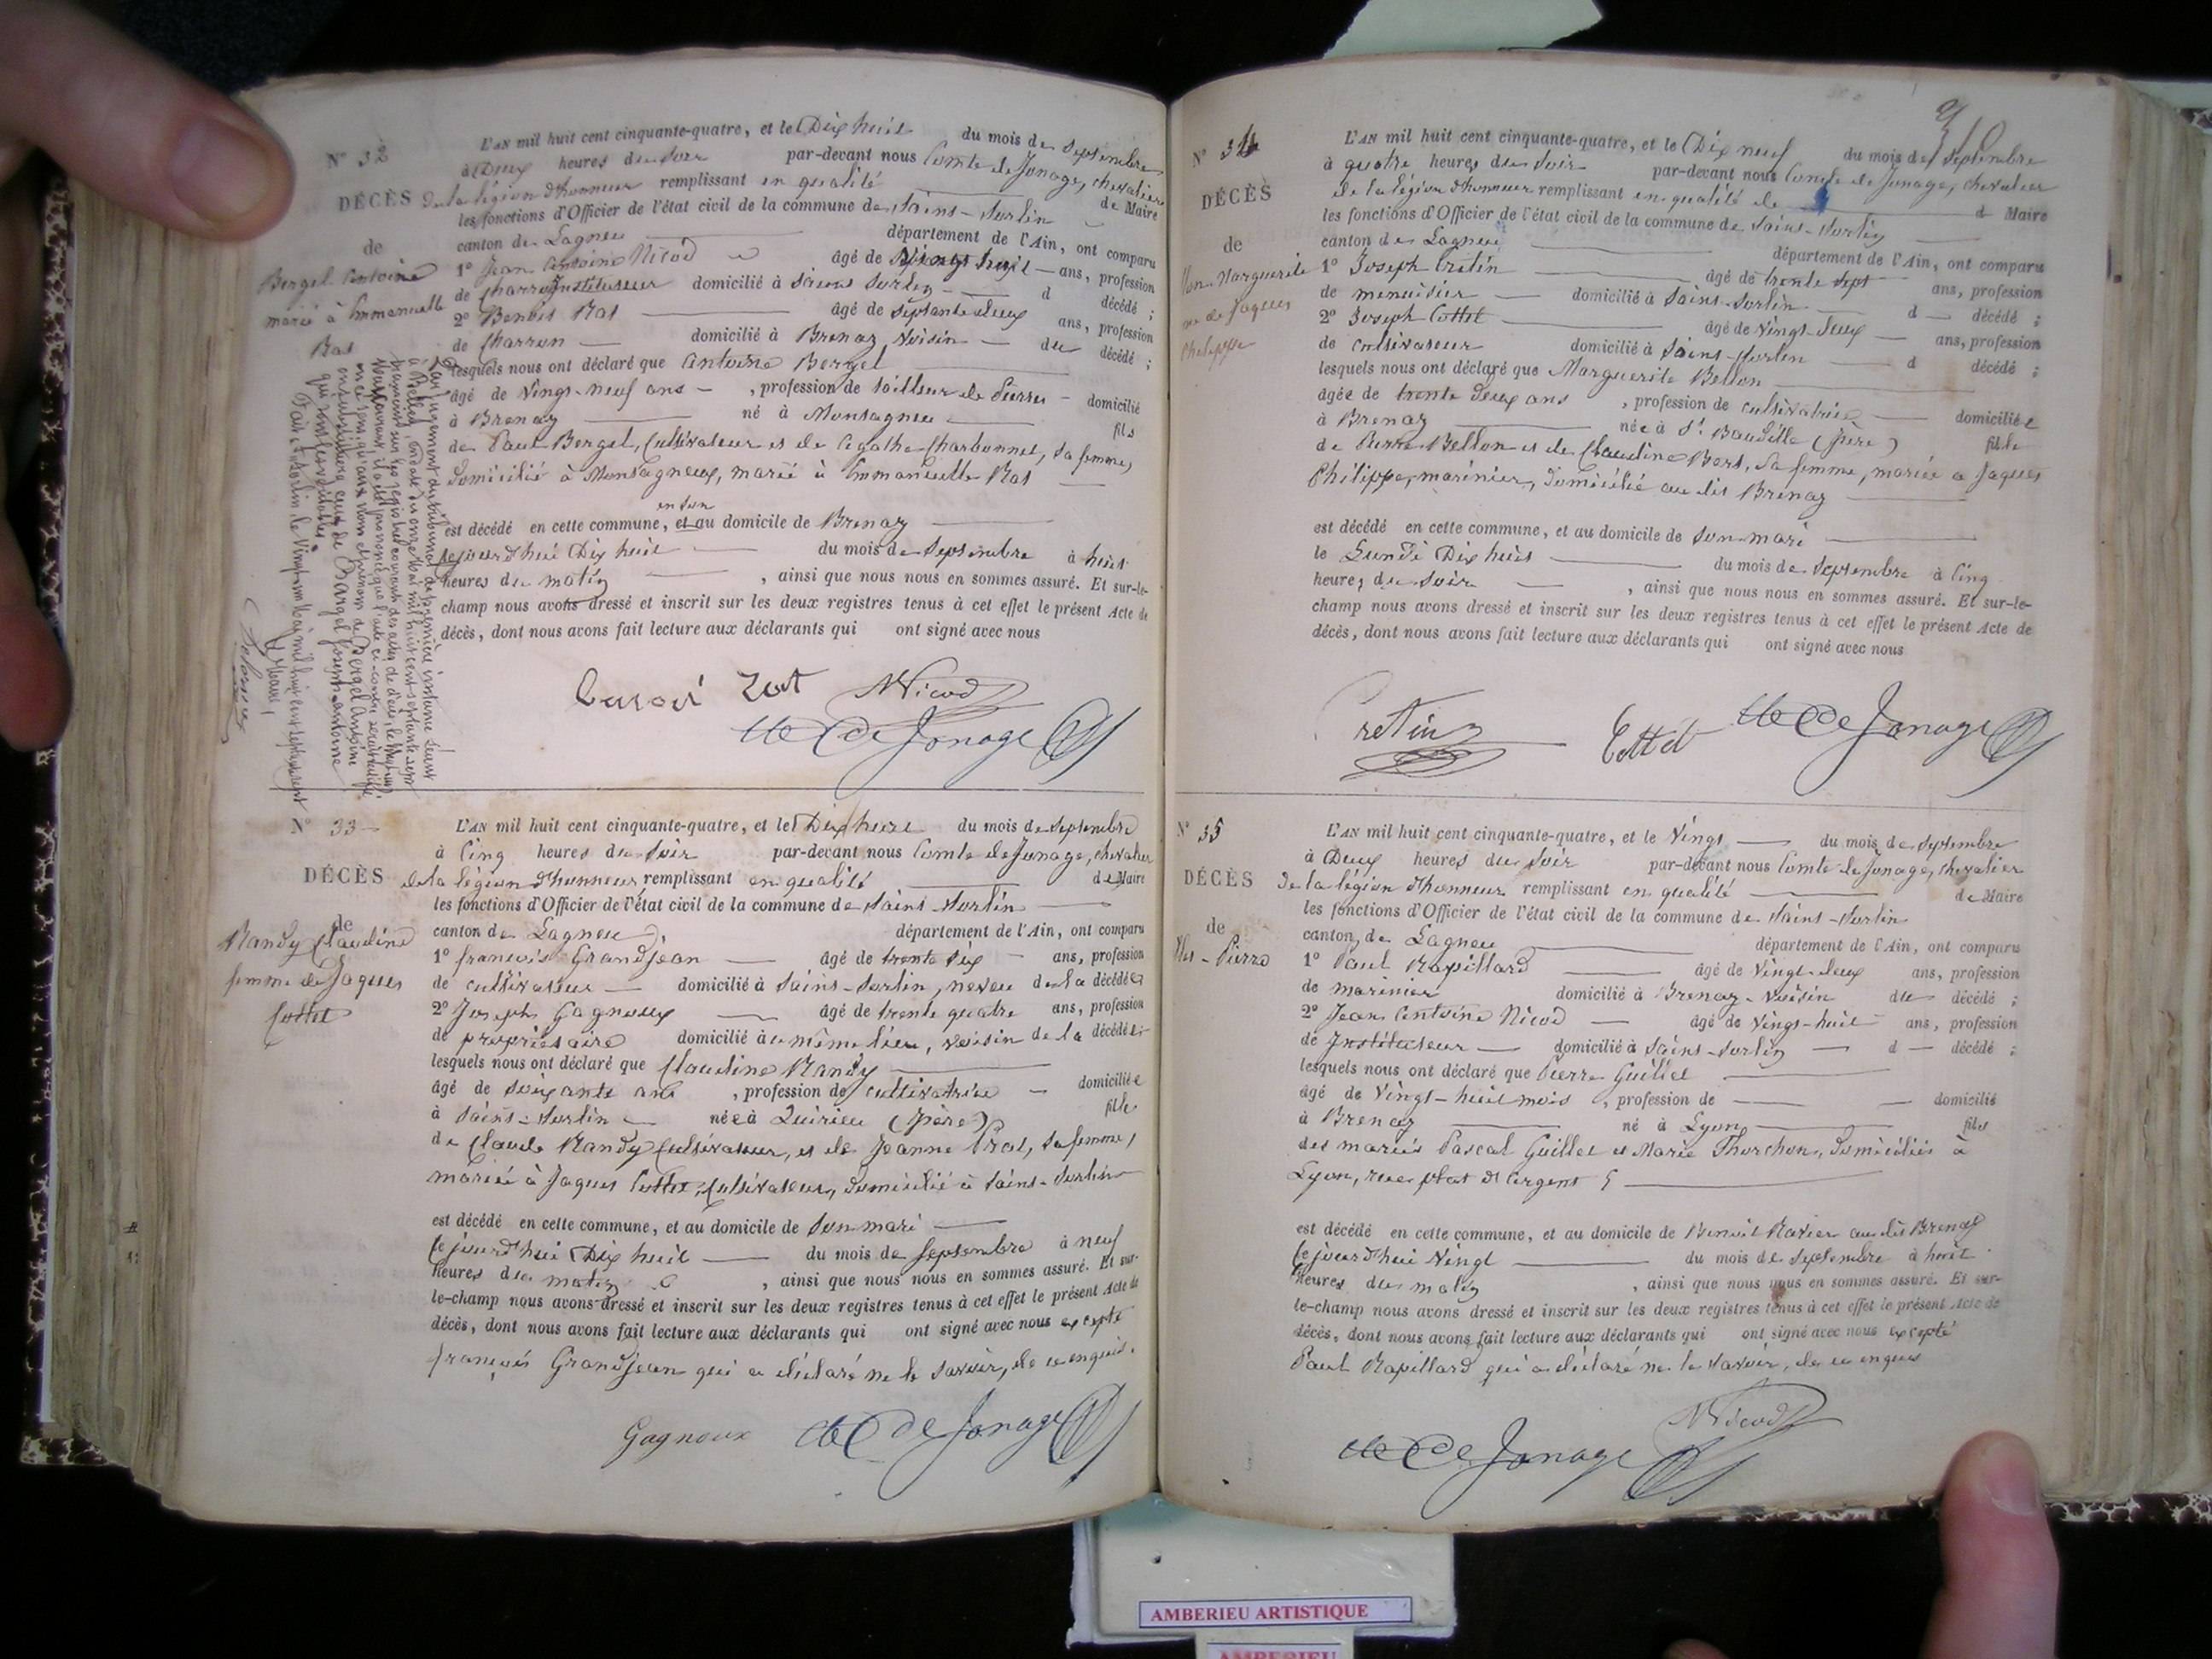 N° 32
L'AN mil huit cent cinquante-quatre, et le Dix huit du mois de Septembre
à Deux heures du Soir par-devant nous Comte de Jonage, chevalier
DÉCÈS de la légion d'honneur remplissant en qualité de Maire
les fonctions d'Officier de l'état civil de la commune de Saint-Sorlin
de
canton de Lagneu département de l'Ain, ont comparu
Bergel Antoine
marié à Emmanuelle
Ras
1° Jean Antoine Nicod âgé de Vingt huit ans, profession
de Instituteur domicilié à Saint Sorlin d décédé ;
2° Benoit Ras âgé de Septante deux ans, profession
de Charron domicilié à Brenaz Voisin du décédé ;
lesquels nous ont déclaré que Antoine Bergel
âgé de Vingt-neuf ans , profession de tailleur de Pierres domicilié
à Brenaz né à Montagneu fils
de Paul Bergel, Cultivateur et de Agathe Charbonnet, sa femme,
domicilié à Montagneux, marié à Emmanuelle Ras
en son
est décédé en cette commune, et au domicile de Brenaz
ce jourd'hui Dix huit du mois de Septembre à huit
heures du matin , ainsi que nous nous en sommes assuré. Et sur-le-
champ nous avons dressé et inscrit sur les deux registres tenus à cet effet le présent Acte de
décès, dont nous avons fait lecture aux déclarants qui ont signé avec nous
Par jugement du tribunal de première instance séant
à Belley, en date du onze Mai mil huit cent septante sept
qui sont les véritables
Fait à St Sorlin le Vingt un Mai mil huit cent septante sept
Le Maire,
NNicod
de Jonage
N° 33
L'AN mil huit cent cinquante-quatre, et le Dix huit du mois de Septembre
à Cinq heures du Soir par-devant nous Comte de Jonage, chevalier
DÉCÈS de la légion d'honneur, remplissant en qualité de Maire
les fonctions d'Officier de l'état civil de la commune de Saint-Sorlin
de
Randy Claudine
femme de Jaques
Cottet
canton de Lagneu département de l'Ain, ont comparu
1° françois Grandjean âgé de trente six ans, profession
de cultivateur domicilié à Saint-Sorlin, neveu de la décédée
2° Joseph Gagnoux âgé de trente quatre ans, profession
de propriétaire domicilié à ce même lieu, voisin de la décédée
lesquels nous ont déclaré que Claudine Randy
âgé de soixante ans , profession de cultivatrice domiciliée
à Saint-Sorlin née à Quirieu (Isère) fille
de Claude Randy Cultivateur, et de Jeanne Prat, sa femme,
mariée à Jaques Cottet, Cultivateur, domicilié à Saint-Sorlin
est décédé en cette commune, et au domicile de son mari
ce jourd'hui Dix huit du mois de Septembre à neuf
heures du matin , ainsi que nous nous en sommes assuré. Et sur-
le-champ nous avons dressé et inscrit sur les deux registres tenus à cet effet le présent Acte de
décès, dont nous avons fait lecture aux déclarants qui ont signé avec nous excepté
françois Grandjean qui a déclaré ne le savoir, de ce enquis.
Gagnoux de Jonage
N° 34
L'AN mil huit cent cinquante-quatre, et le Dix neuf du mois de Septembre
à quatre heures du Soir par-devant nous Comte de Jonage, chevalier
DÉCÈS de la légion d'honneur remplissant en qualité de d Maire
les fonctions d'Officier de l'état civil de la commune de Saint-Sorlin
de
Marguerite
de Jaques
Philippe
canton de Lagneu département de l'Ain, ont comparu
1° Joseph Cretin âgé de trente sept ans, profession
de menuisier domicilié à Saint-Sorlin d décédé ;
2° Joseph Cottet âgé de vingt-deux ans, profession
de cultivateur domicilié à Saint-Sorlin d décédé ;
lesquels nous ont déclaré que Marguerite Bellon
âgée de trente deux ans , profession de cultivatrice domiciliée
à Brenaz née à St Baudille (Isère) fille
de Pierre Bellon et de Claudine Bert, sa femme, mariée à Jaques
Philippe, marinier, domicilié au dit Brenaz
est décédé en cette commune, et au domicile de son mari
le Lundi Dix huit du mois de Septembre à Cinq
heures du Soir , ainsi que nous nous en sommes assuré. Et sur-le-
champ nous avons dressé et inscrit sur les deux registres tenus à cet effet le présent Acte de
décès, dont nous avons fait lecture aux déclarants qui ont signé avec nous
Cretin Cottet de Jonage
N° 35
L'AN mil huit cent cinquante-quatre, et le Vingt du mois de Septembre
à Deux heures du Soir par-devant nous Comte de Jonage, chevalier
DÉCÈS de la légion d'honneur remplissant en qualité de Maire
les fonctions d'Officier de l'état civil de la commune de Saint-Sorlin
de
Pierre
canton de Lagneu département de l'Ain, ont comparu
1° Paul Rapillard âgé de Vingt-deux ans, profession
de marinier domicilié à Brenaz-Voisin du décédé ;
2° Jean Antoine Nicod âgé de Vingt-huit ans, profession
de Instituteur domicilié à Saint-Sorlin d décédé ;
lesquels nous ont déclaré que Pierre Guillet
âgé de Vingt-huit mois , profession de domicilié
à Brenaz né à Lyon fils
des mariés Pascal Guillet et Marie Thorchon, domiciliés à
Lyon, rue plat d'Argent 5
est décédé en cette commune, et au domicile de Benoit Ravier au dit Brenaz
ce jourd'hui Vingt du mois de Septembre à huit
heures du matin , ainsi que nous nous en sommes assuré. Et sur-
le-champ nous avons dressé et inscrit sur les deux registres tenus à cet effet le présent Acte de
décès, dont nous avons fait lecture aux déclarants qui ont signé avec nous excepté
Paul Rapillard qui a déclaré ne le savoir, de ce enquis
NNicod
de Jonage
AMBERIEU ARTISTIQUE
AMBERIEU